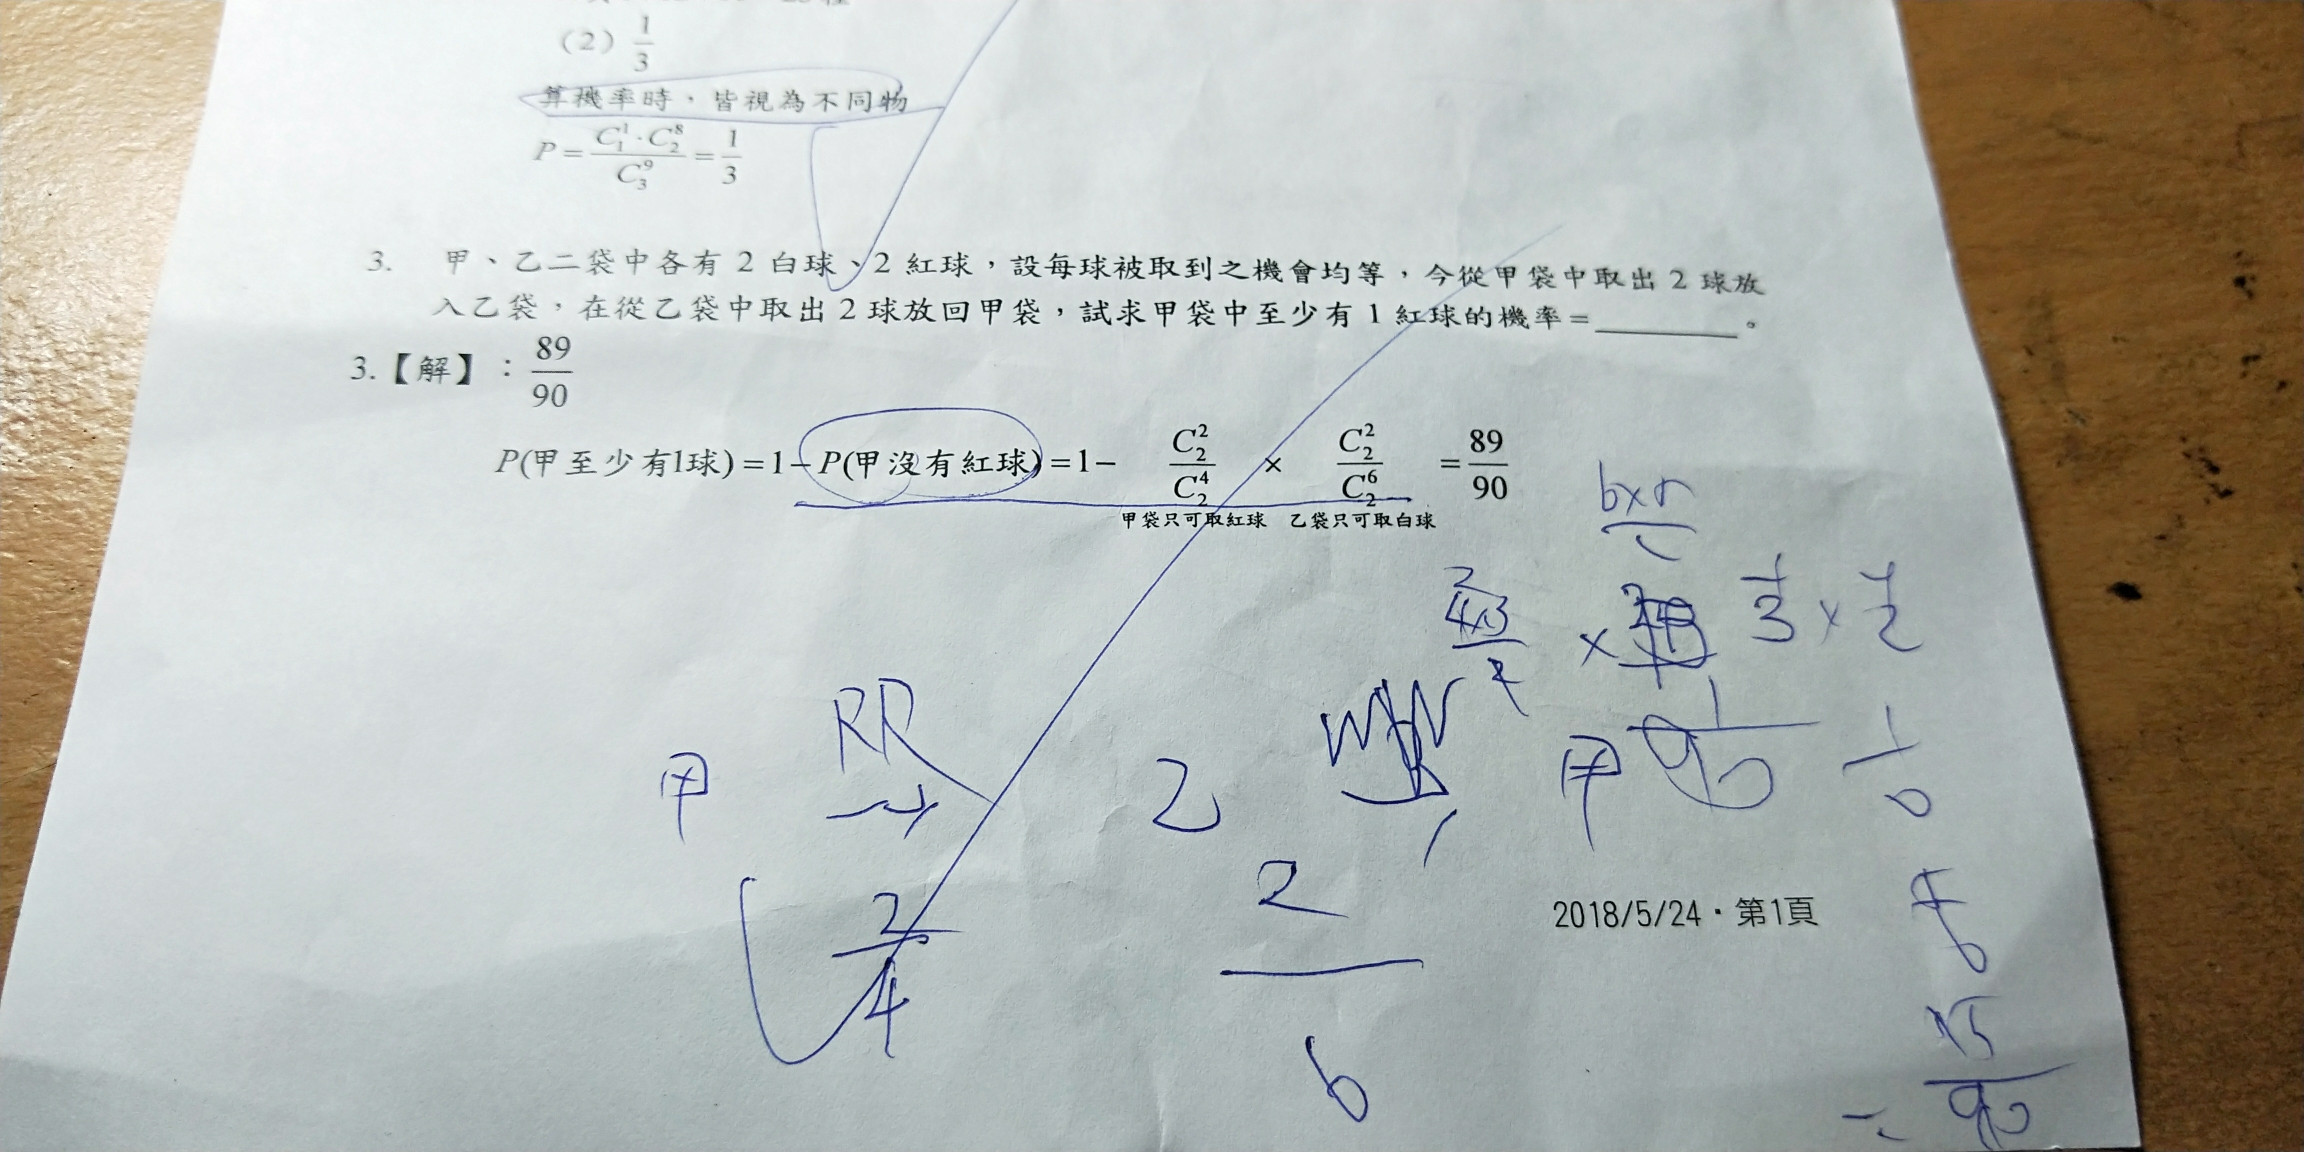 (2) 1/3
算機率時，皆視為不同物
P = C₁¹·C₂⁸ / C₃⁹ = 1/3
3. 甲、乙二袋中各有 2 白球、2 紅球，設每球被取到之機會均等，今從甲袋中取出 2 球放
入乙袋，在從乙袋中取出 2 球放回甲袋，試求甲袋中至少有 1 紅球的機率＝________。
3.【解】：89/90
P(甲至少有1球)=1−P(甲沒有紅球)=1− C₂²/C₂⁴ × C₂²/C₂⁶ = 89/90
甲袋只可取紅球 乙袋只可取白球
1/3 × 1/2
RR
甲 → 乙 甲 1/90 1/10
2/4 2/6
2018/5/24・第1頁